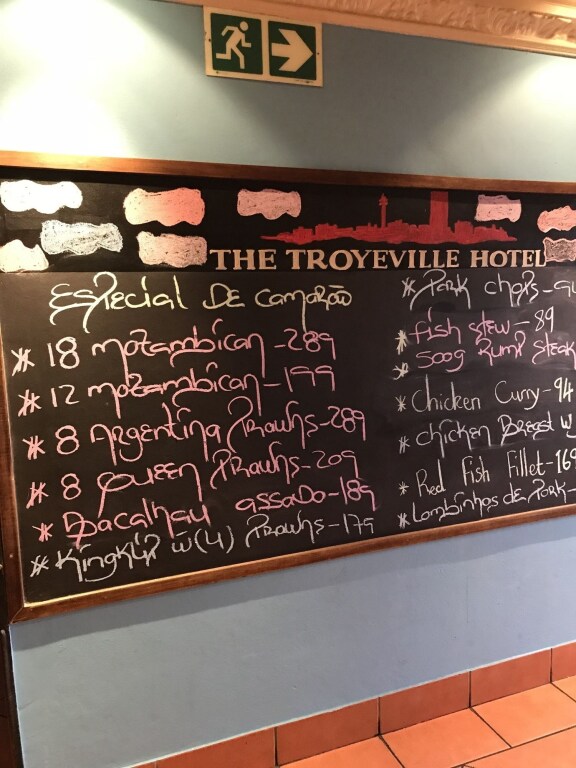 THE TROYEVILLE HOTEL
Especial De Camarão
* 18 mozambican - 289
* 12 mozambican - 199
* 8 Argentina Prawns - 289
* 8 Queen Prawns - 209
* Bacalhau assado - 189
* Kingklip w (4) Prawns - 179
* Pork chops -
* fish stew - 89
* 500g Rump Steak
* Chicken Curry - 94
* chicken Breast w
* Red Fish Fillet - 169
* Lombinhos De Pork -